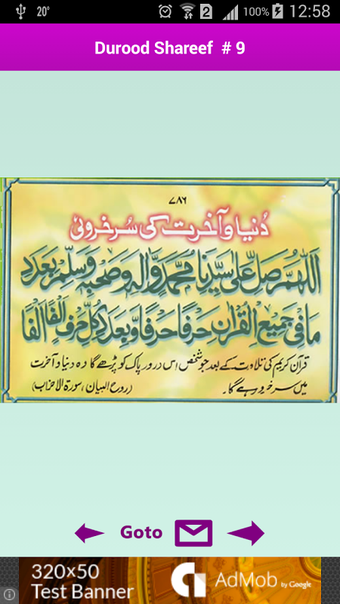 20°
100%
12:58
Durood Shareef # 9
٧٨٦
دُنیا و آخرت کی سرخروئی
اَللّٰهُمَّ صَلِّ عَلٰى سَيِّدِنَا مُحَمَّدٍ وَّاٰلِهٖ وَصَحْبِهٖ وَسَلِّمْ بِعَدَدِ
مَا فِيْ جَمِيْعِ الْقُرْاٰنِ حَرْفًا حَرْفًا وَّبِعَدَدِ كُلِّ حَرْفٍ اَلْفًا اَلْفًا
قرآن کریم کی تلاوت کے بعد جو شخص اس درود پاک کو پڑھے گا وہ دنیا و آخرت
میں سرخرو رہے گا۔ (روح البیان سورۃ الاحزاب)
Goto
320x50
Test Banner
AdMob by Google